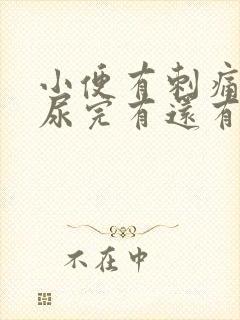 小便有刺痛
尿完有還有
不在中